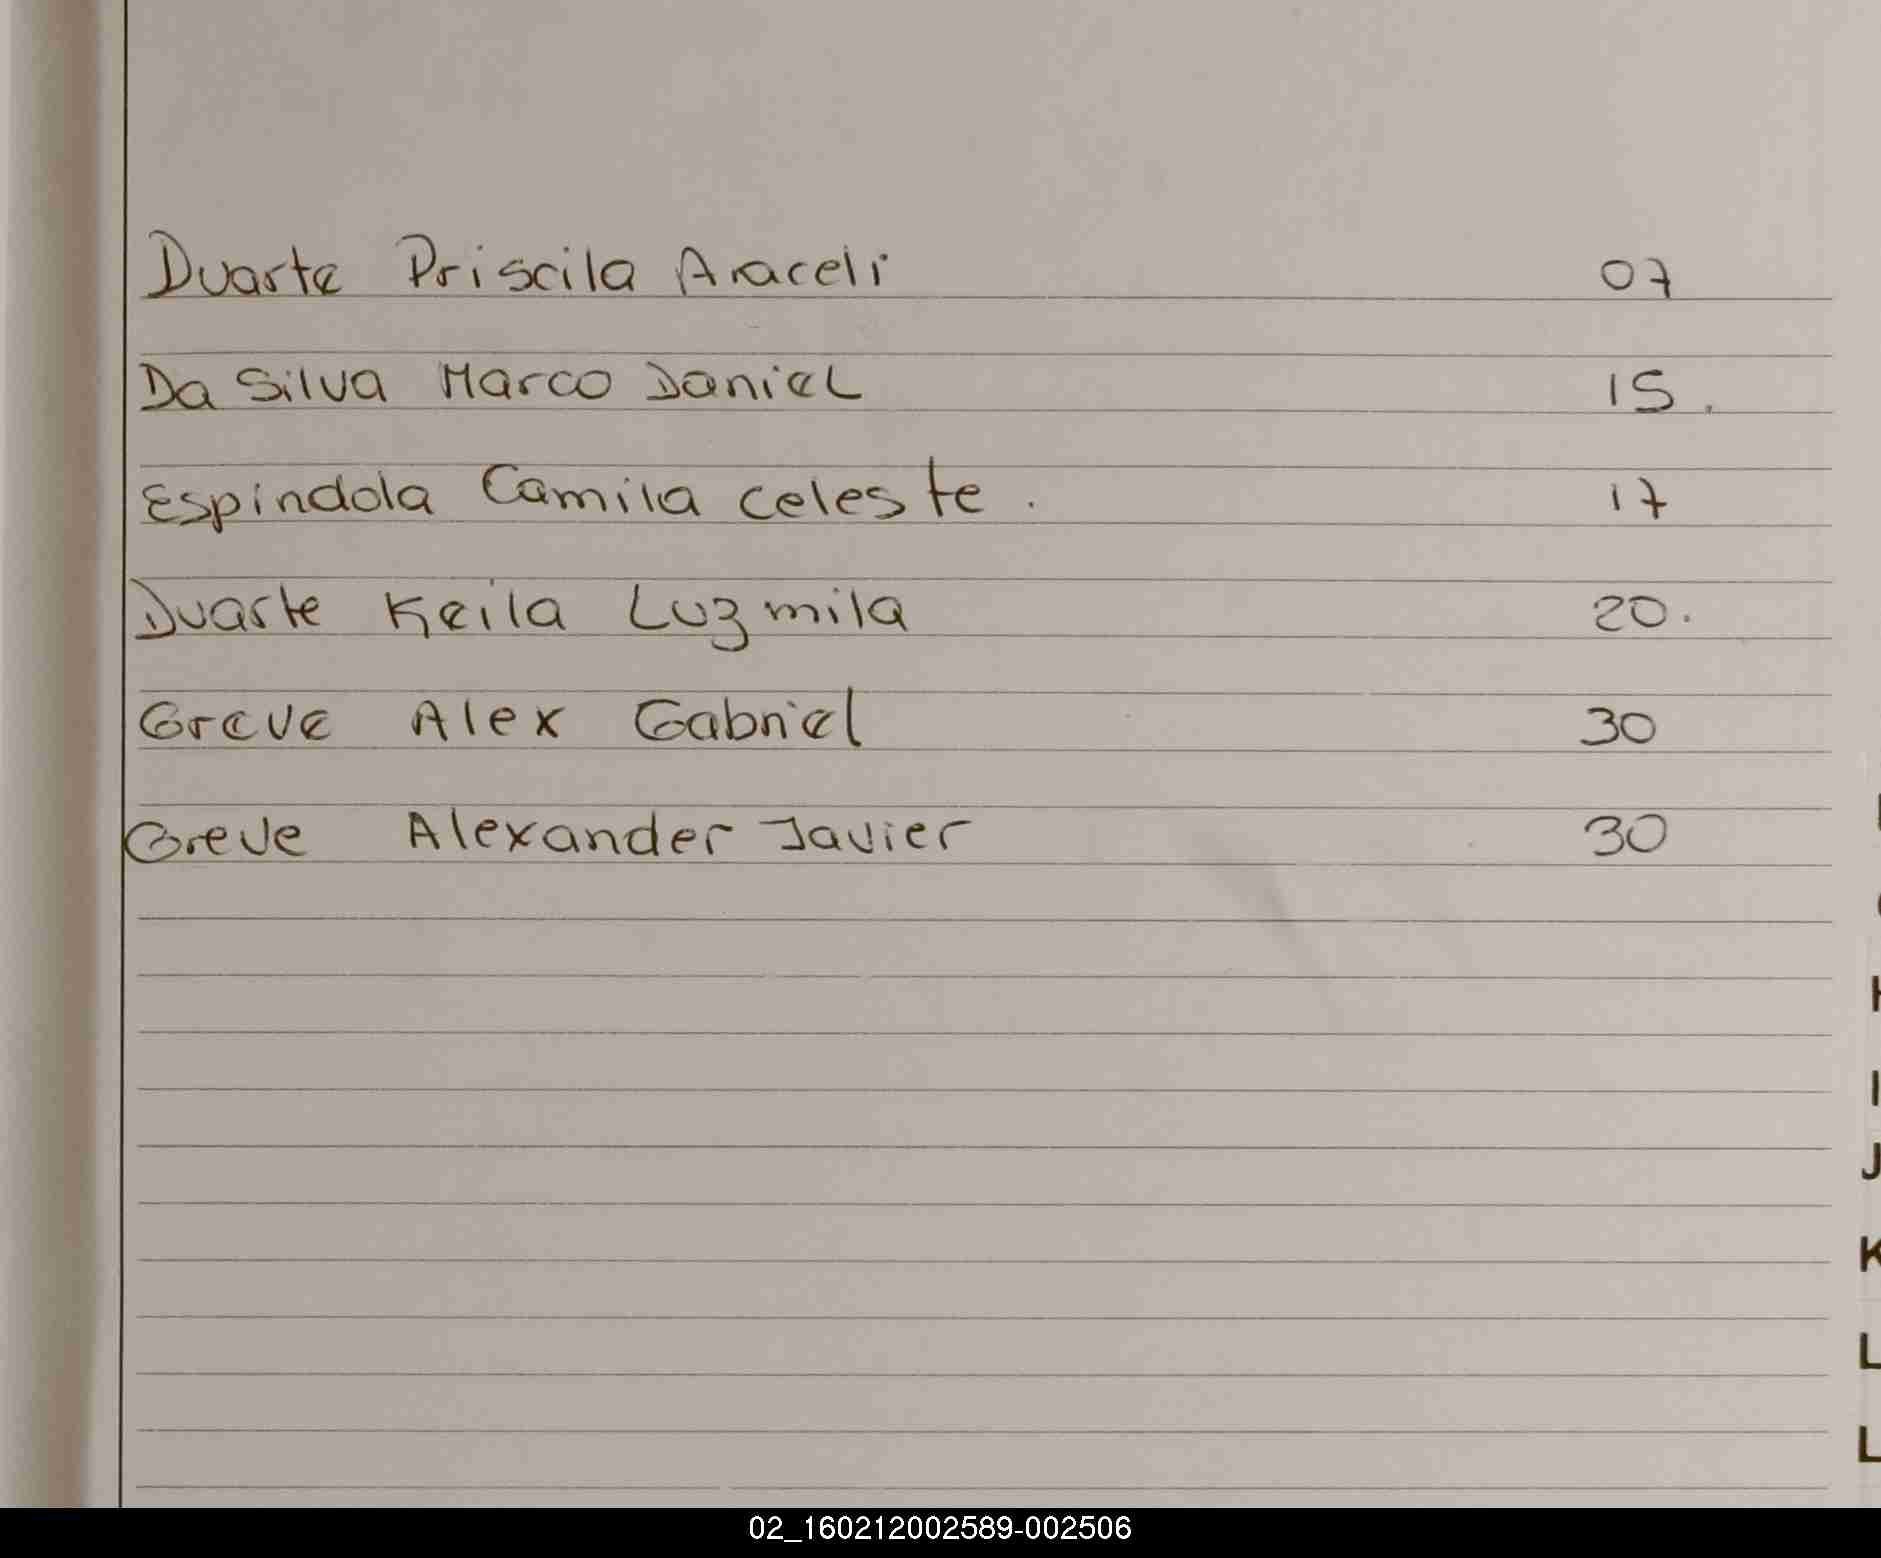 Duarte Priscila Araceli 07
Da Silva Marco Daniel 15.
Espindola Camila Celeste. 17
Duarte Keila Luzmila 20.
Greve Alex Gabriel 30
Greve Alexander Javier 30
I
J
K
L
L
02_160212002589-002506